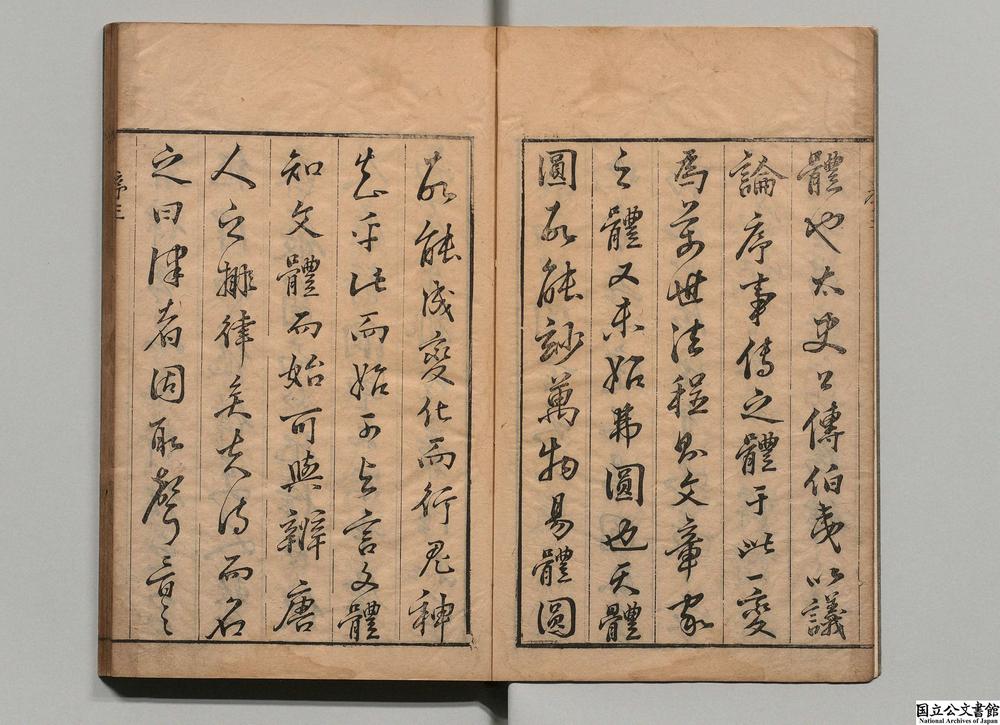 體也太史公傳伯夷以議
論序事傳之體于此一變
爲萬世法程則文章家
之體又未始弗圓也天體
圓故能妙萬物易體圓
故能成變化而行鬼神
知乎此而始可與言文體
知文體而始可與辨唐
人之排律矣夫詩而名
之曰律者固取聲音之
序三
国立公文書館
National Archives of Japan